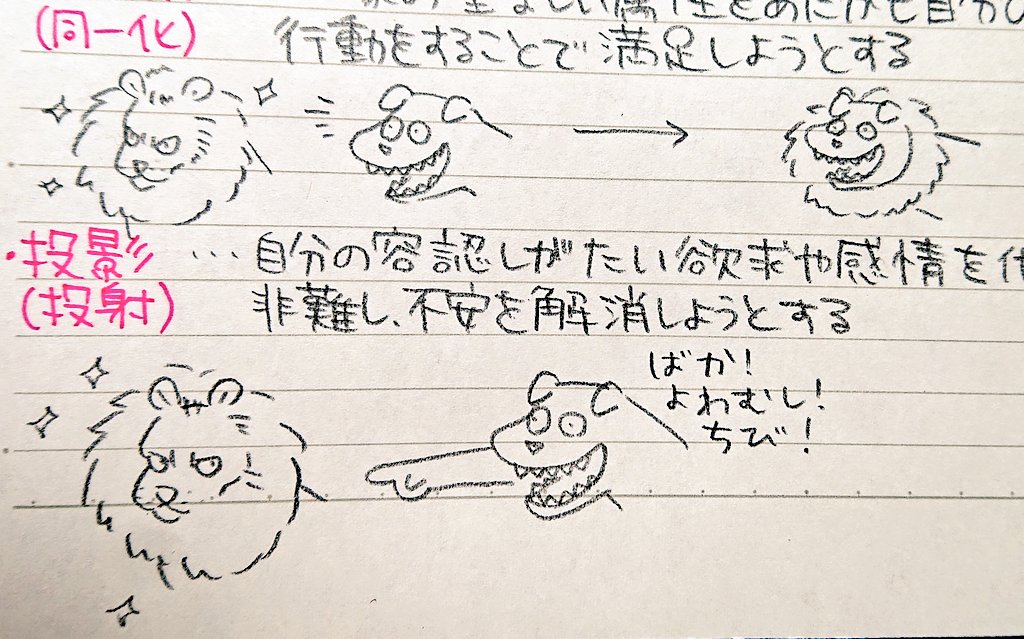 行動をすることで満足しようとする
(同一化)
・投影 … 自分の容認しがたい欲求や感情を
(投射) 非難し、不安を解消しようとする
ばか!
よわむし!
ちび!